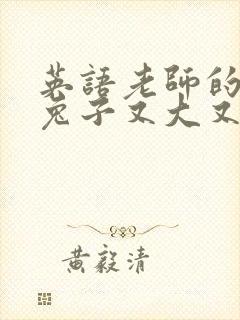 英語老師的
兔子又大又
黃毅清